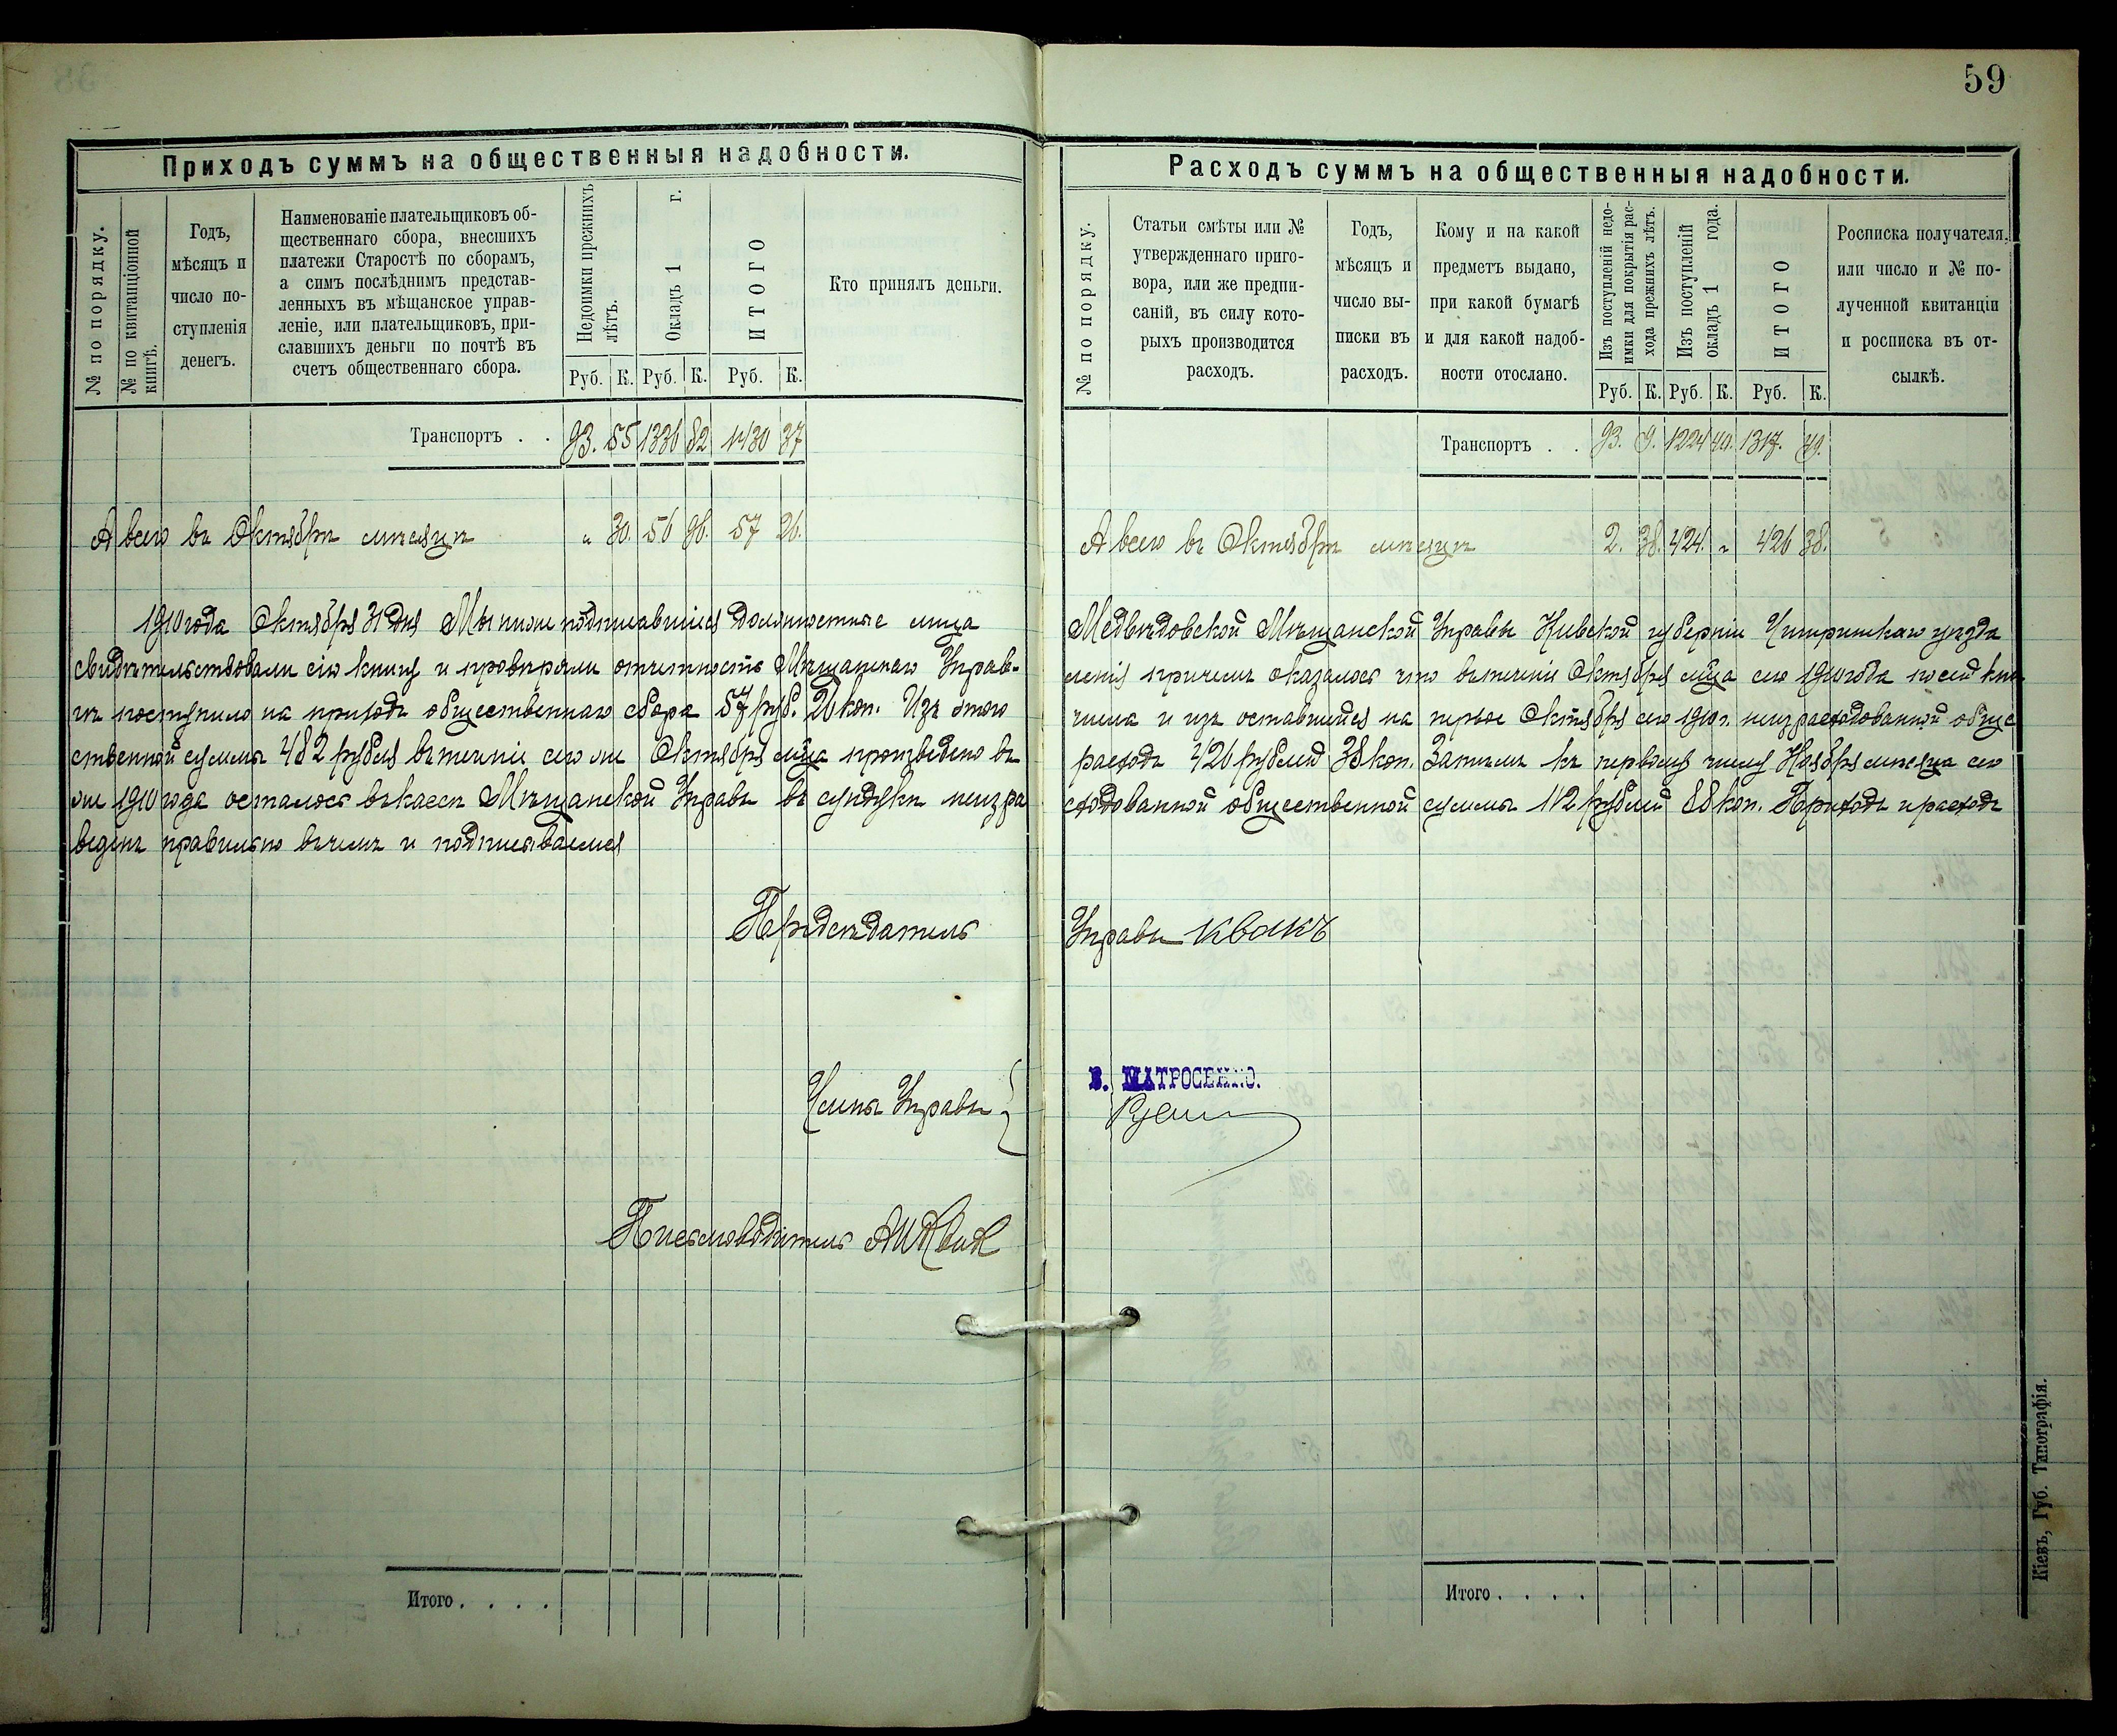 59
Приходъ суммъ на общественныя надобности.
№ по порядку.
№ по квитанціонной
книгѣ.
Годъ,
мѣсяцъ и
число по-
ступленія
денегъ.
Наименованіе плательщиковъ об-
щественнаго сбора, внесшихъ
платежи Старостѣ по сборамъ,
а симъ послѣднимъ представ-
ленныхъ въ мѣщанское управ-
леніе, или плательщиковъ, при-
славшихъ деньги по почтѣ въ
счетъ общественнаго сбора.
Недоимки прежнихъ
лѣтъ.
Окладъ 1 г.
ИТОГО
Кто принялъ деньги.
Руб. К. Руб. К. Руб. К.
Транспортъ . . 93. 55 1336 82 1430 37
А всего въ Октябрѣ мѣсяцѣ „ 30. 56 96. 57 26.
Расходъ суммъ на общественныя надобности.
№ по порядку.
Статьи смѣты или №
утвержденнаго приго-
вора, или же предпи-
саній, въ силу кото-
рыхъ производится
расходъ.
Годъ,
мѣсяцъ и
число вы-
писки въ
расходъ.
Кому и на какой
предметъ выдано,
при какой бумагѣ
и для какой надоб-
ности отослано.
Изъ поступленій недо-
имки для покрытія рас-
хода прежнихъ лѣтъ.
Изъ поступленій
окладъ 1 года.
ИТОГО
Росписка получателя,
или число и № по-
лученной квитанціи
и росписка въ от-
сылкѣ.
Руб. К. Руб. К. Руб. К.
Транспортъ . . 93. 9. 1224 40. 1317. 49.
А всего въ Октябрѣ мѣсяцѣ 2. 38. 424. „ 426 38.
1910 года Октября 31 дня Мы нижеподписавшіеся должностные лица Медвѣдовской Мѣщанской Управы Кіевской губерніи Чигиринскаго уѣзда
свидѣтельствовали сію книгу и провѣряли отчетность Мѣщанскаго Управ- ленія причемъ оказалось что въ теченіи Октября мѣца сего 1910 года по сей кни
гѣ поступило на приходъ общественнаго сбора 57 руб. 26 коп. Изъ этого числа и изъ оставшейся на первое Октября сего 1910 г. неизрасходованной обще
ственной суммы 482 рубля въ теченіе сего же Октября мѣца произведено въ расходъ 426 рублей 38 коп. Затѣмъ къ первому числу Ноября мѣсяца сего
же 1910 года осталось въ кассѣ Мѣщанской Управы въ сундукѣ неизра сходованной общественной суммы 112 рублей 88 коп. Приходъ и расходъ
веденъ правильно въ чемъ и подписываемся
Предсѣдатель Управы Квакъ
Члены Управы {
В. МАТРОСЕНКО.
Письмоводитель
Итого . . . .
Итого . . . .
Кіевъ, Губ. Типографія.